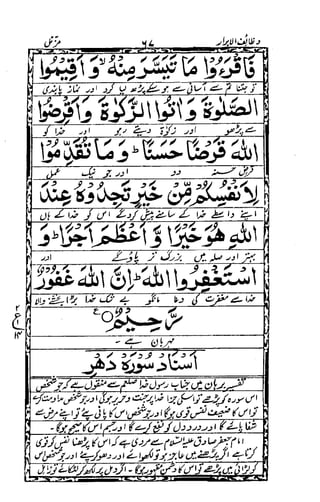 وظائف الابرار ۶۷ مزمّل
فَاقْرَءُوْا مَا تَيَسَّرَ مِنْهُ وَ اَقِيْمُوا
تو جتنا تم سے آسانی سے ہو سکے پڑھ لیا کرو اور نماز پابندی
الصَّلٰوةَ وَ اٰتُوا الزَّكٰوةَ وَ اَقْرِضُوا
سے پڑھو اور زکوٰۃ دیتے رہو اور خدا کو
اللّٰهَ قَرْضًا حَسَنًا ؕ وَ مَا تُقَدِّمُوْا
قرض حسنہ دو اور جو نیک عمل
لِاَنْفُسِكُمْ مِّنْ خَيْرٍ تَجِدُوْهُ عِنْدَ
اپنے واسطے خدا کے سامنے پیش کرو گے اس کو خدا کے ہاں
اللّٰهِ هُوَ خَيْرًا وَّ اَعْظَمَ اَجْرًا ؕ وَ
بہتر اور صلہ میں بزرگ تر پاؤ گے اور
اسْتَغْفِرُوا اللّٰهَ ؕ اِنَّ اللّٰهَ غَفُوْرٌ
خدا سے مغفرت کی دعا مانگو بے شک خدا بڑا بخشنے والا
رَّحِيْمٌ
مہربان ہے۔
اسناد سورہ دہر
تفسیر برہان میں جناب رسول خدا صلعم سے منقول ہے کہ جو شخص
اس سورہ کو پڑھے تو اسکی جزا خدا پر جنت و حریر ہوگی اور جو شخص مداومت کرے
تو اس کا ضعیف نفس قوی ہوگا اور جو شخص اس کا پانی پئے تو اپنے مرض سے
شفا پائے گا اور درد دل کو نفع کرے گا اور جسم اس کا صحیح ہوگا۔
امام جعفر صادق علیہ السلام سے مروی ہے کہ اس کا پڑھنا نفس کو قوی
کرتا ہے اگر پڑھنے میں عاجز ہو تو لکھوائے اور دھو کر پئے اور جو شخص اس
کو لڑائی میں پڑھے تو اس کا دشمن مقہور ہوگا۔ اگر دل پر لکھ کر لٹکائے تو زائل